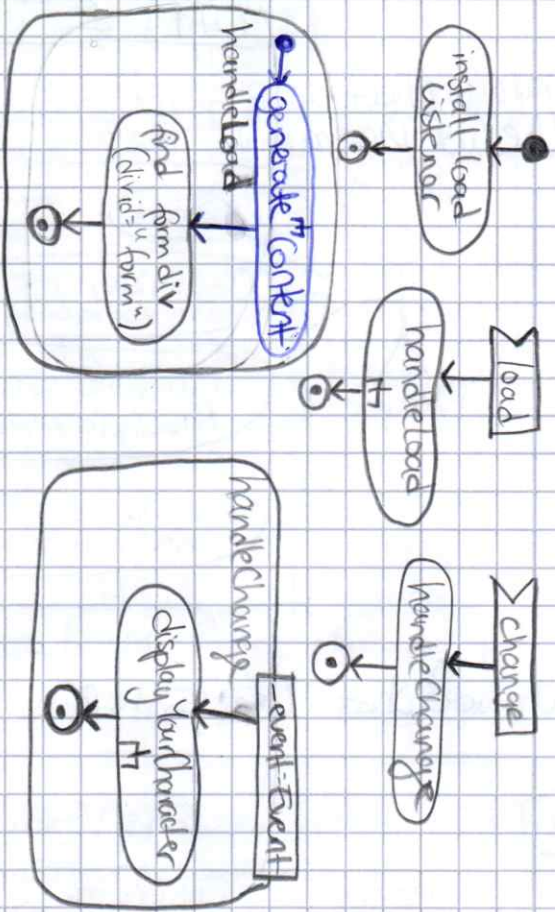 install load
Listener
load
handleload
change
handleChange
handleLoad
generate Content
find form div
(div id="form")
handleChange
_event:Event
displayYourCharacter